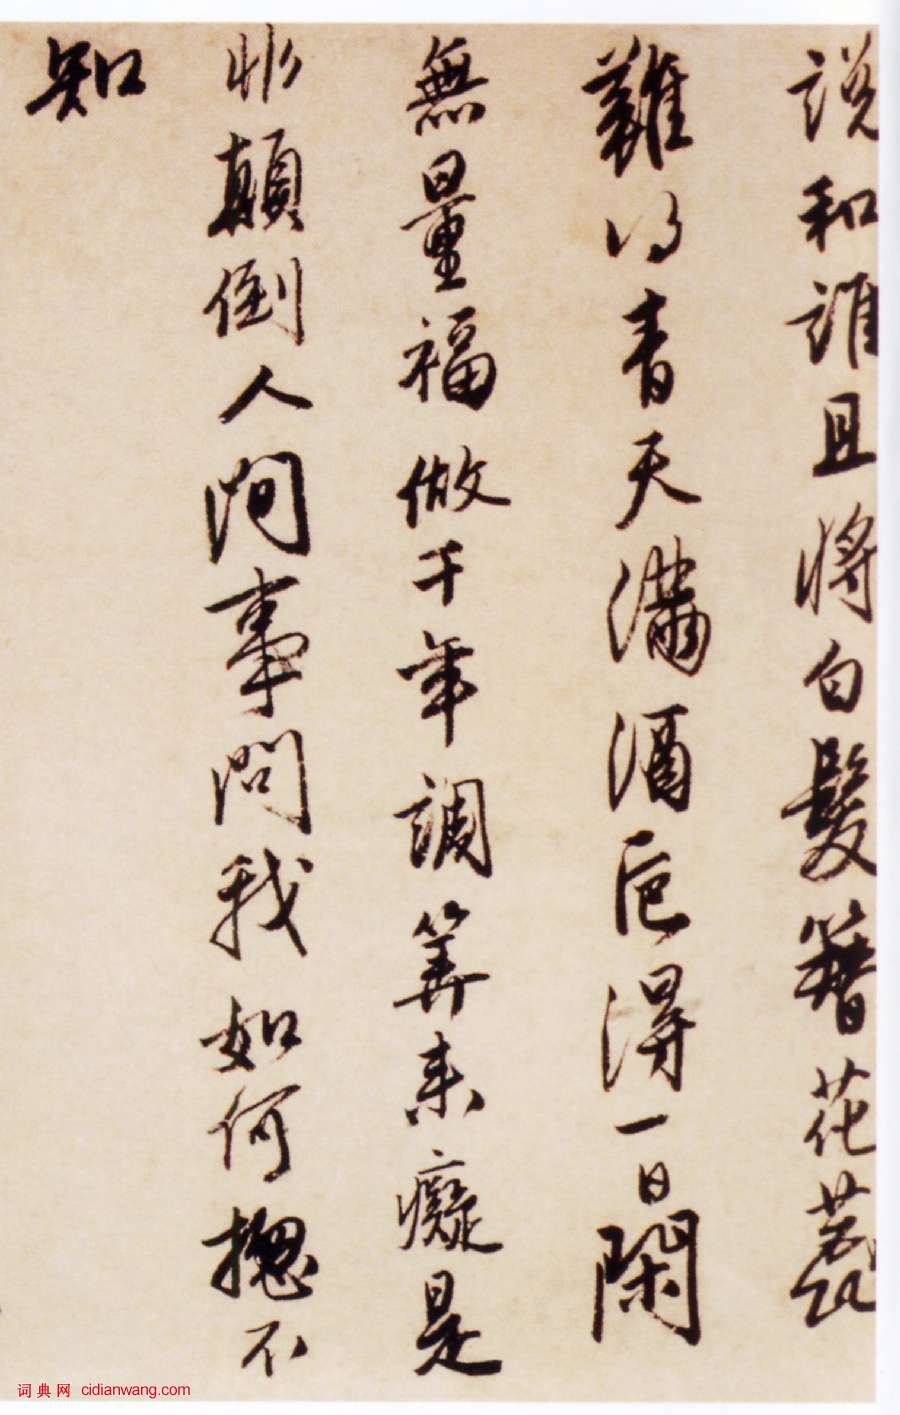 説和誰且將白髮簪花蕊
難得青天滿酒卮得一日閑
無量福做千年調筭來癡是
非顛倒人間事問我如何摠不
知
词典网 cidianwang.com